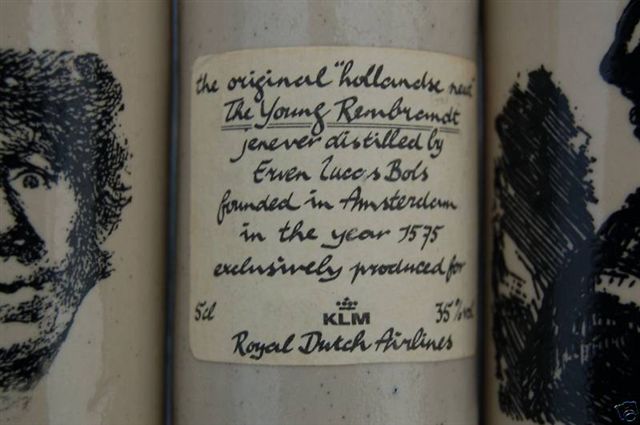 the original "hollandse neus"
The Young Rembrandt
jenever distilled by
Erven Lucas Bols
founded in Amsterdam
in the year 1575
exclusively produced for
5cl KLM 35% vol.
Royal Dutch Airlines